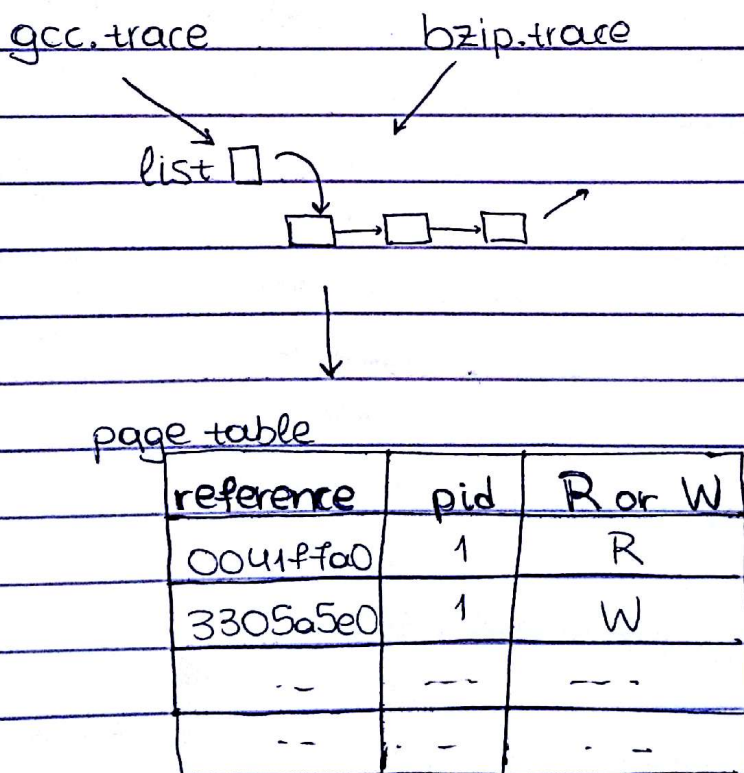 gcc.trace bzip.trace
list
page table
reference pid R or W
0041f7a0 1 R
3305a5e0 1 W